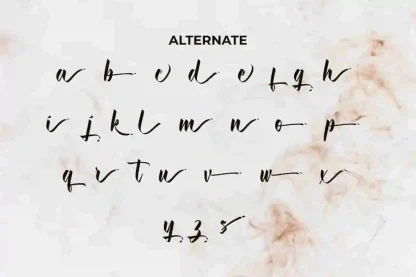 ALTERNATE
a b c d e f g h
i j k l m n o p
q r t u v w x
y z s